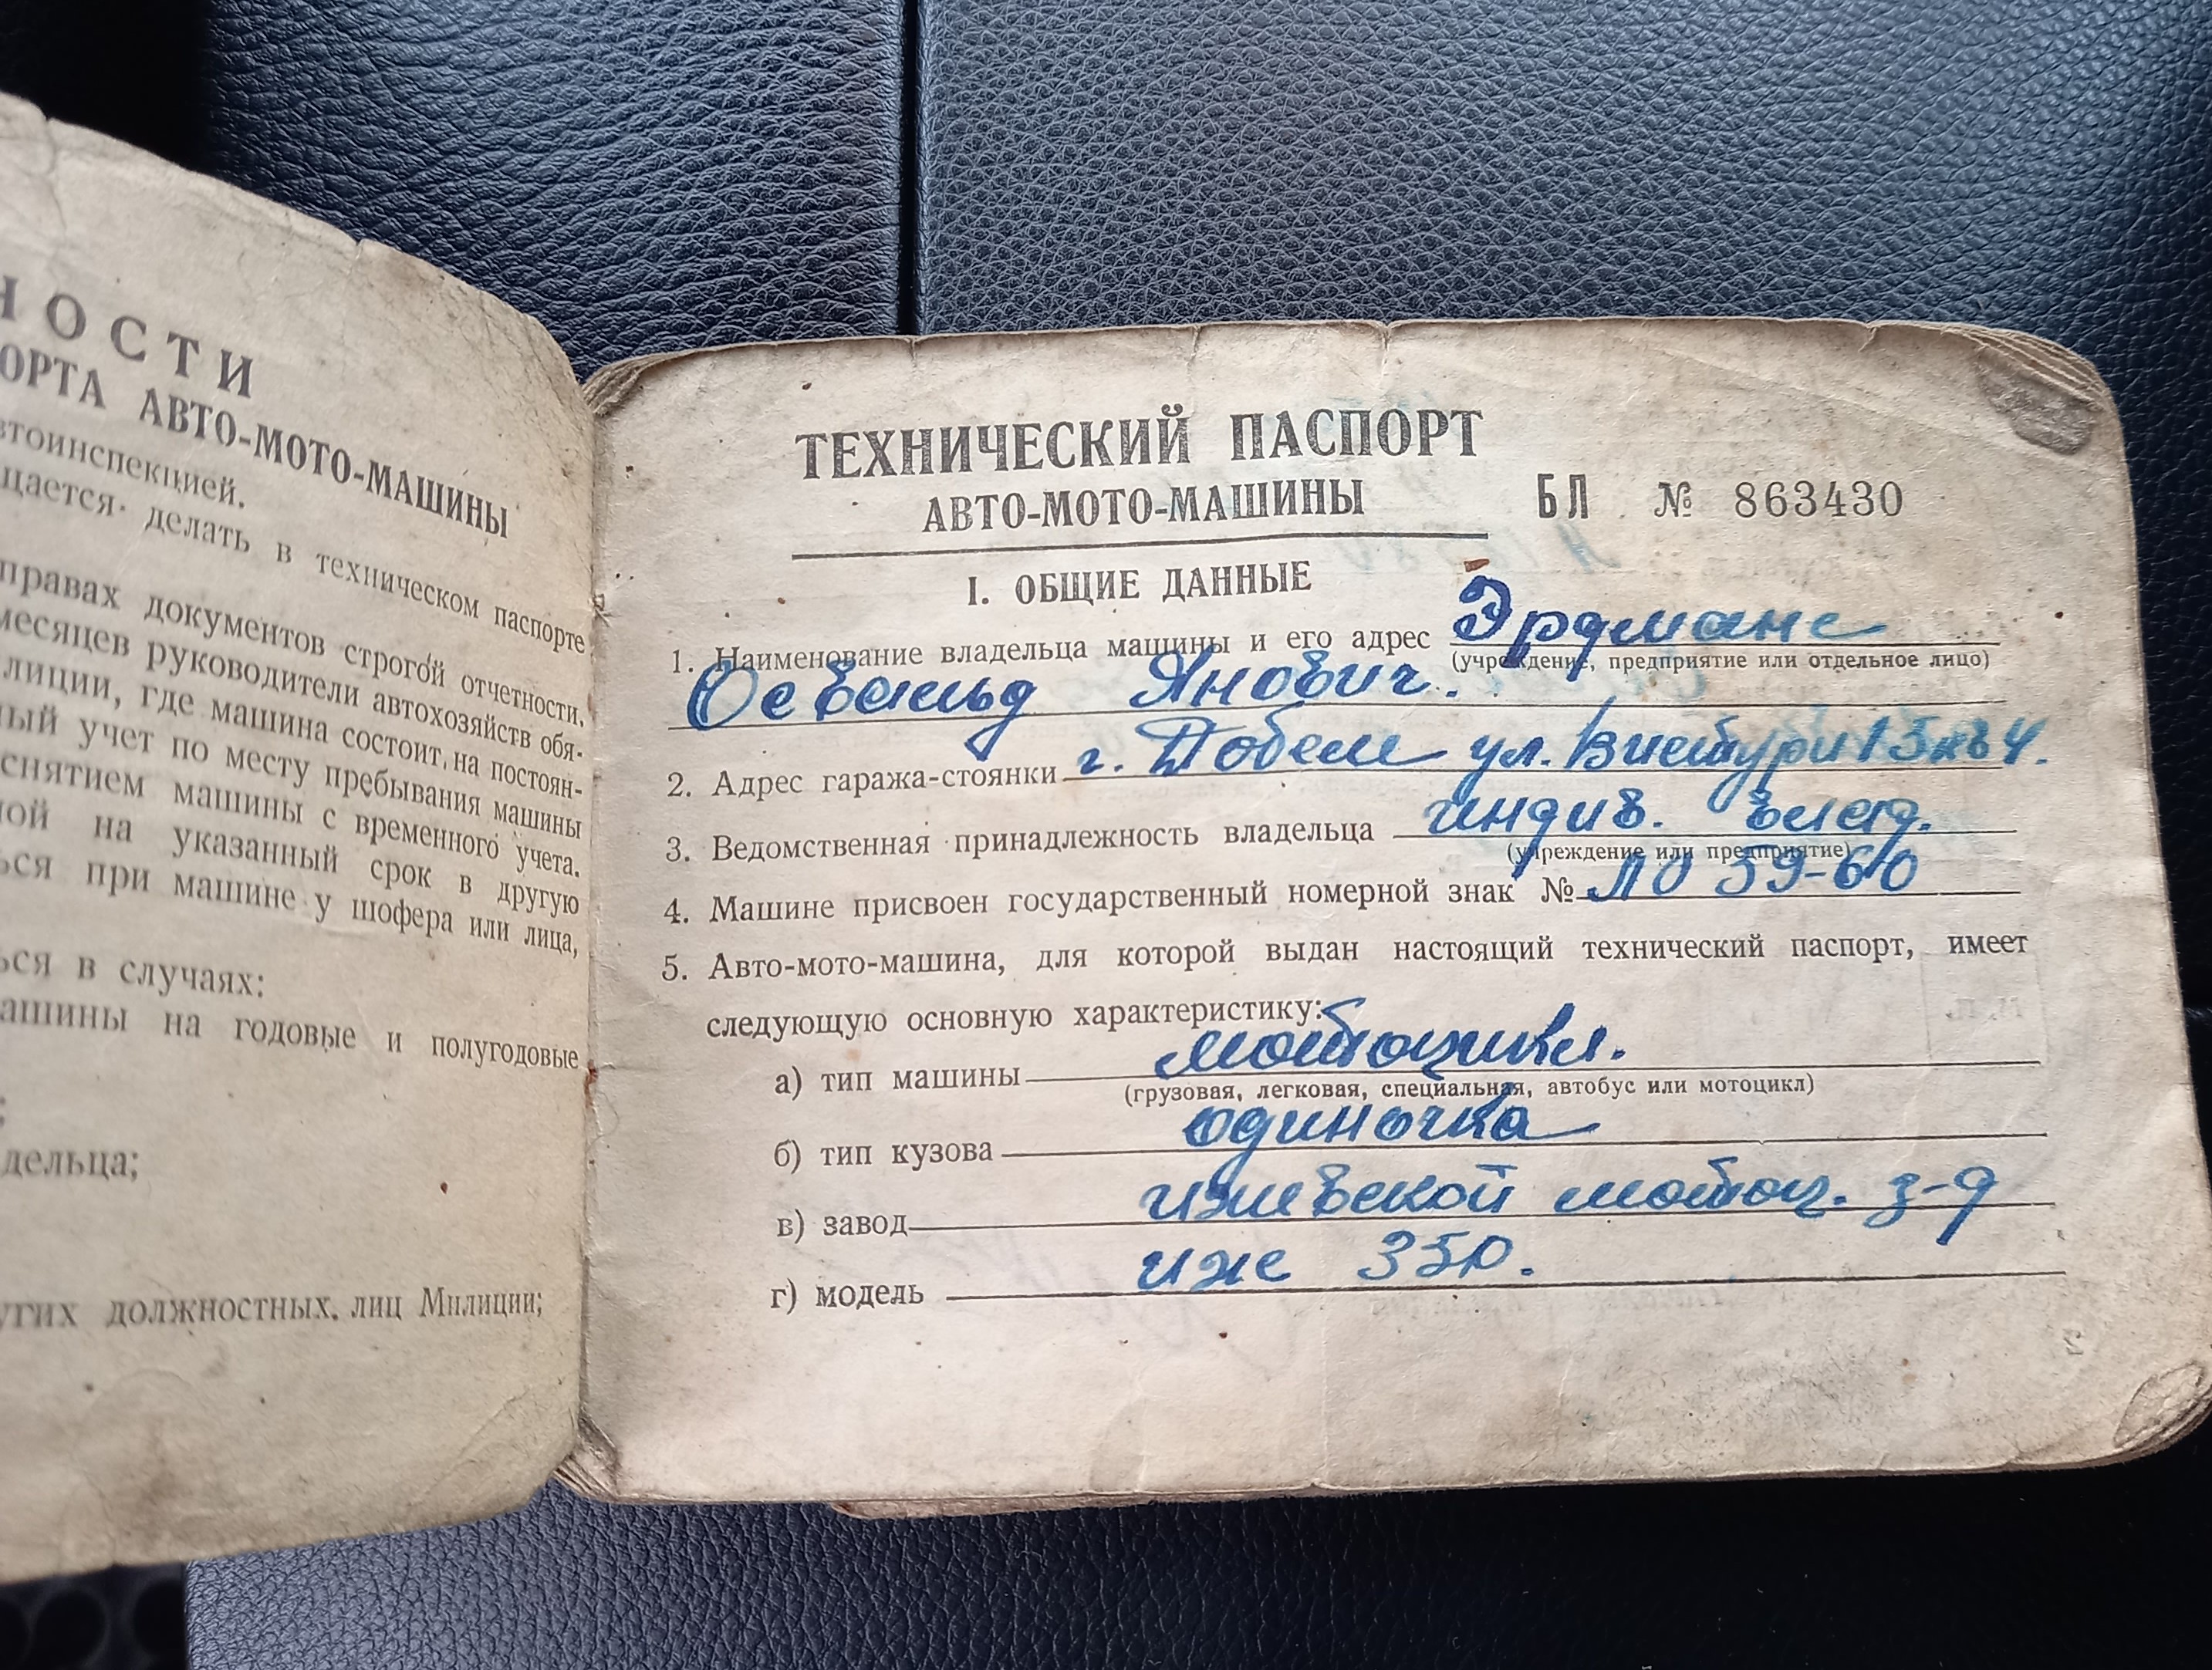 НОСТИ
ОРТА АВТО-МОТО-МАШИНЫ
втоинспекцией.
щается делать в техническом паспорте
правах документов строгой отчетности.
месяцев руководители автохозяйств обя-
лиции, где машина состоит на постоян-
ный учет по месту пребывания машины
снятием машины с временного учета.
ной на указанный срок в другую
ься при машине у шофера или лица,
ься в случаях:
ашины на годовые и полугодовые
;
дельца;
угих должностных лиц Милиции;
ТЕХНИЧЕСКИЙ ПАСПОРТ
АВТО-МОТО-МАШИНЫ БЛ № 863430
I. ОБЩИЕ ДАННЫЕ
1. Наименование владельца машины и его адрес Эрдманс
(учреждение, предприятие или отдельное лицо)
Освальд Янович.
2. Адрес гаража-стоянки г. Добеле ул. Виестури 15 кв 4.
3. Ведомственная принадлежность владельца индив. влад.
(учреждение или предприятие)
4. Машине присвоен государственный номерной знак № ЛО 59-60
5. Авто-мото-машина, для которой выдан настоящий технический паспорт, имеет
следующую основную характеристику:
а) тип машины мотоцикл.
(грузовая, легковая, специальная, автобус или мотоцикл)
б) тип кузова одиночка
в) завод ижевской мотоц. з-д
г) модель иж 350.